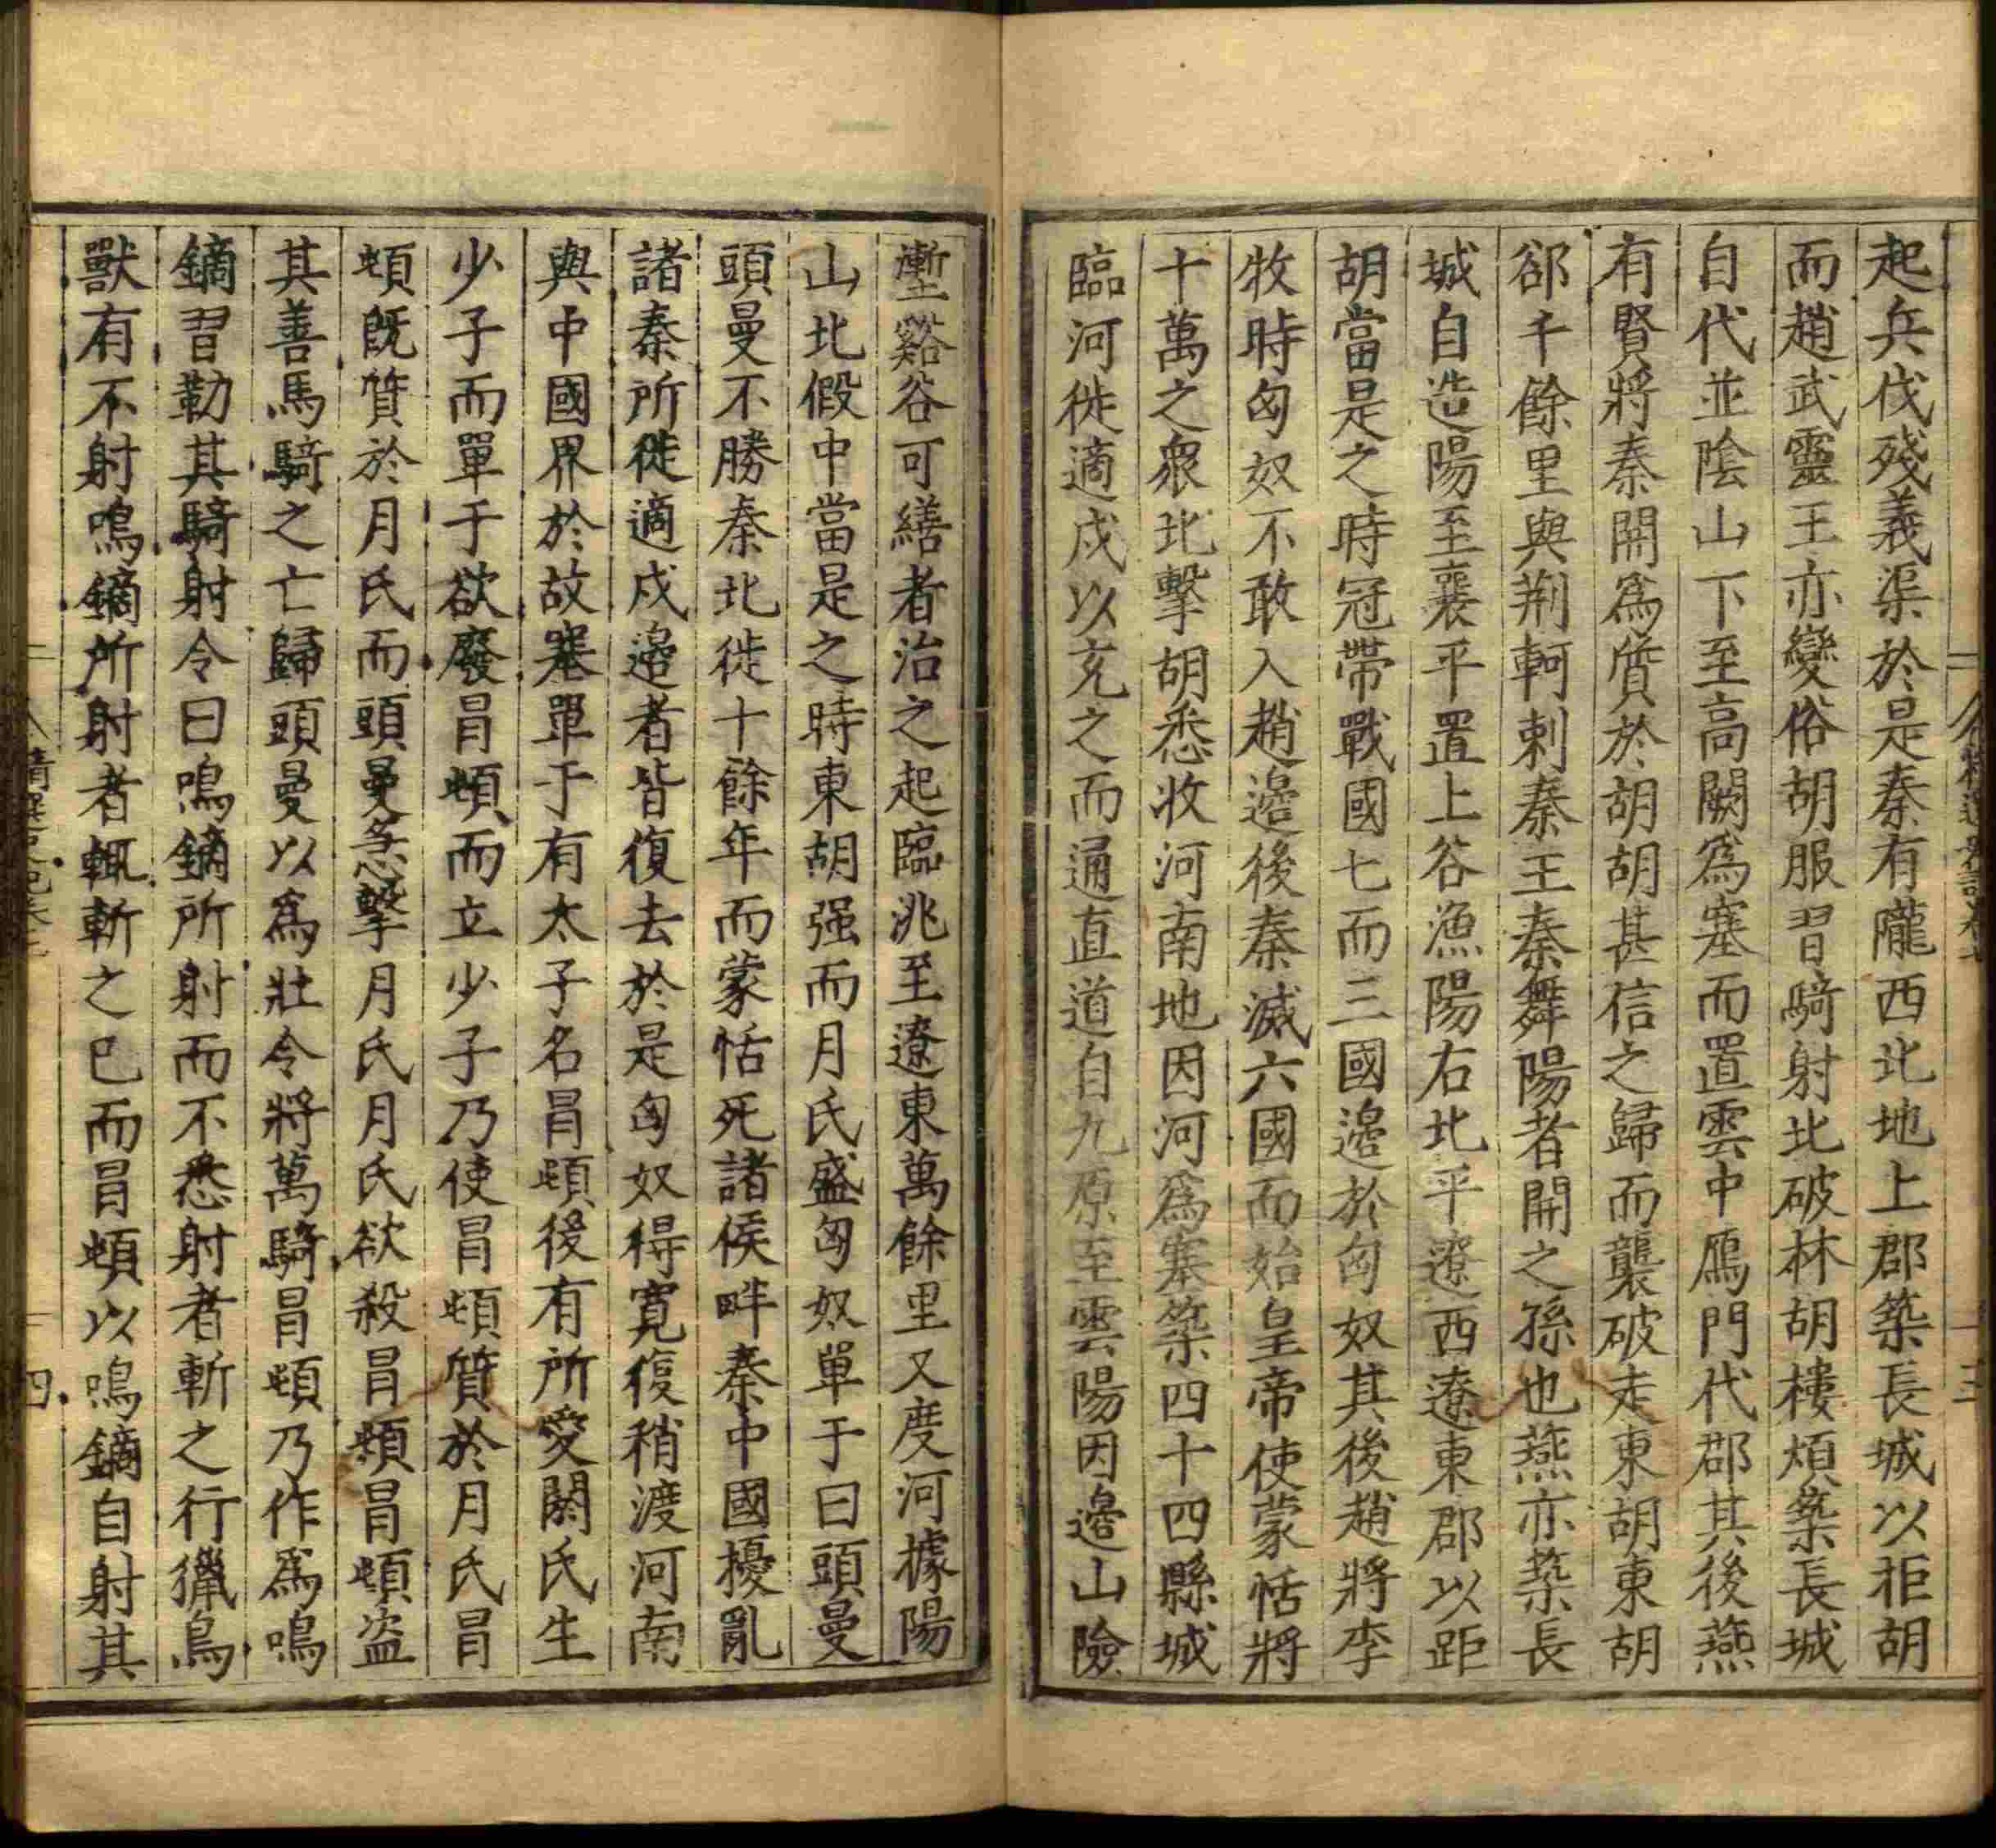 起兵伐殘義渠於是秦有隴西北地上郡築長城以拒胡
而趙武靈王亦變俗胡服習騎射北破林胡樓煩築長城
自代並陰山下至高闕爲塞而置雲中鴈門代郡其後燕
有賢將秦開爲質於胡胡甚信之歸而襲破走東胡東胡
郤千餘里與荆軻刺秦王秦舞陽者開之孫也燕亦築長
城自造陽至襄平置上谷漁陽右北平遼西遼東郡以距
胡當是之時冠帶戰國七而三國邊於匈奴其後趙將李
牧時匈奴不敢入趙邊後秦滅六國而始皇帝使蒙恬將
十萬之衆北擊胡悉收河南地因河爲塞築四十四縣城
臨河徙適戍以充之而通直道自九原至雲陽因邊山險
塹谿谷可繕者治之起臨洮至遼東萬餘里又度河據陽
山北假中當是之時東胡强而月氏盛匈奴單于曰頭曼
頭曼不勝秦北徙十餘年而蒙恬死諸侯畔秦中國擾亂
諸秦所徙適戍邊者皆復去於是匈奴得寛復稍渡河南
與中國界於故塞單于有太子名冒頓後有所愛閼氏生
少子而單于欲廢冒頓而立少子乃使冒頓質於月氏冒
頓既質於月氏而頭曼急擊月氏月氏欲殺冒頓冒頓盗
其善馬騎之亡歸頭曼以爲壯令將萬騎冒頓乃作爲鳴
鏑習勒其騎射令曰鳴鏑所射而不悉射者斬之行獵鳥
獸有不射鳴鏑所射者輒斬之已而冒頓以鳴鏑自射其
四